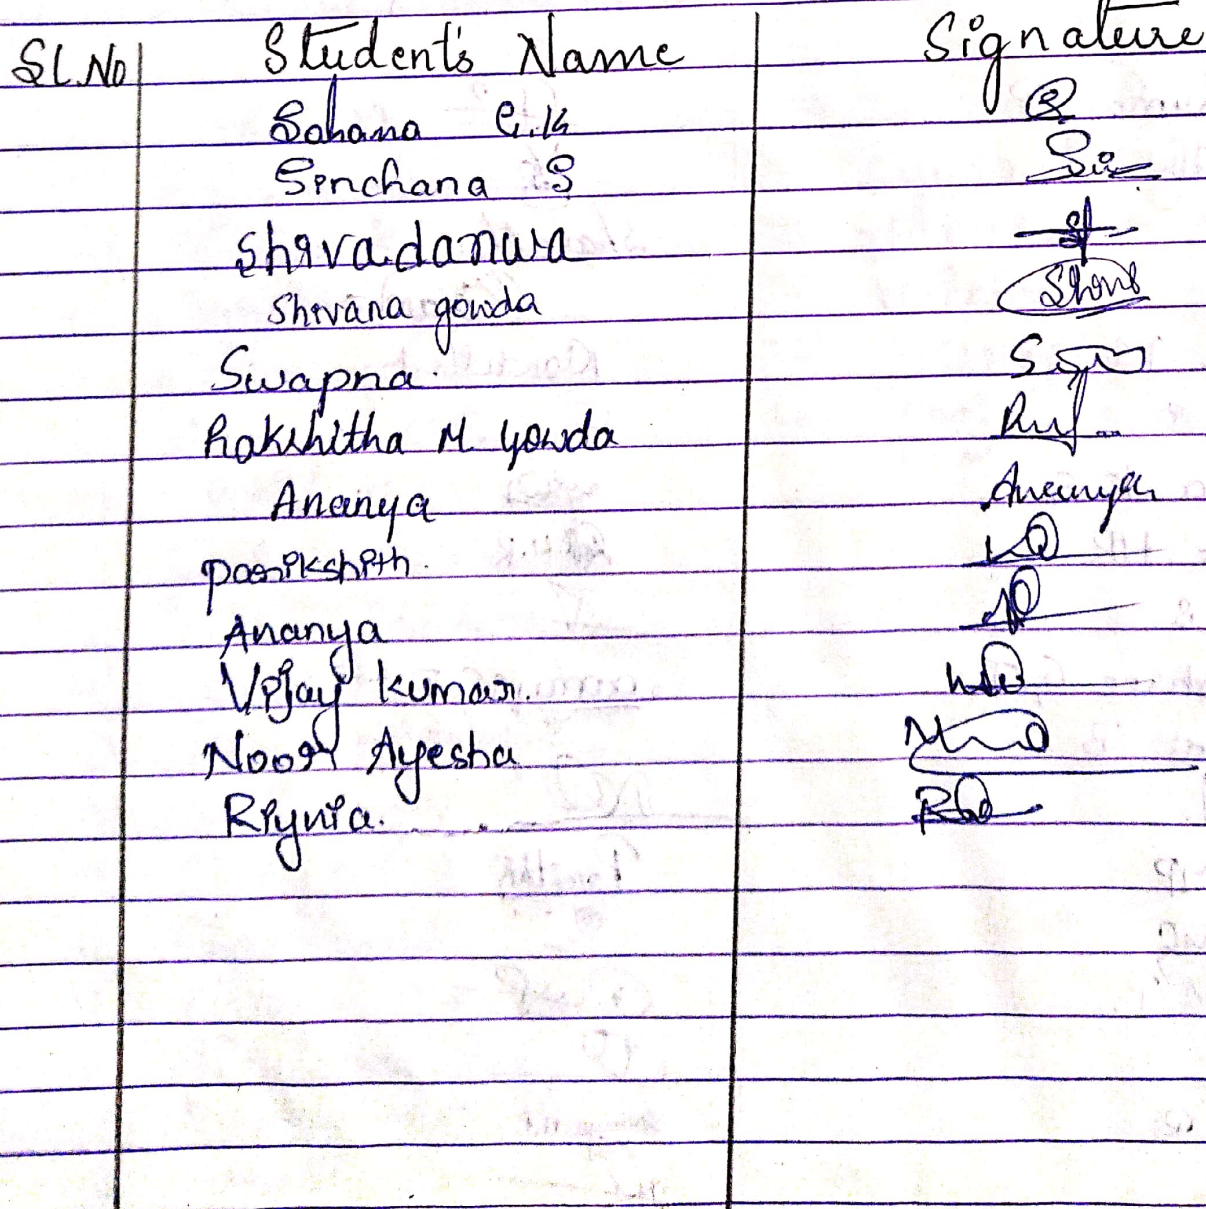 SL.No Student's Name Signature
Sahana G.K
Sinchana S
Shivadanwa
Shivana gowda Shivs
Swapna
Rakshitha M gowda
Ananya Ananya
Parikshith.
Ananya
Vijay kumar.
Noor Ayesha
Riynia.